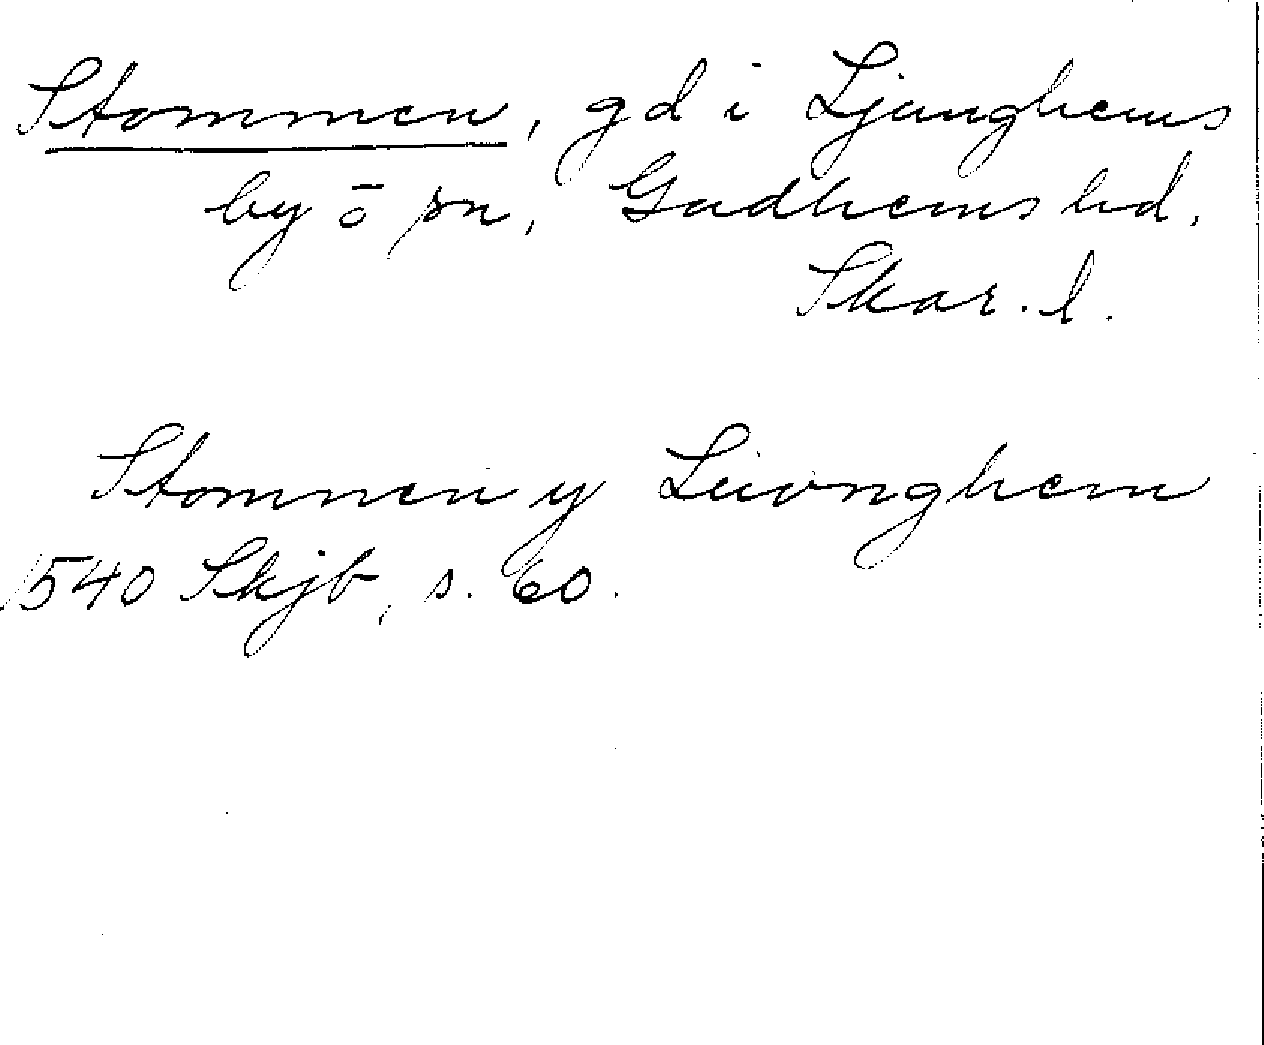 Stommen, gd i Ljunghems
by ō sn, Gudhems hd.
Skar. l.
Stommen y Liwonghem
1540 Skjb, s. 60.